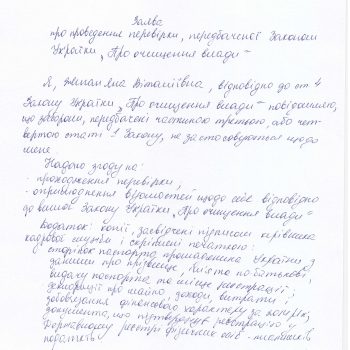 Заява
про проведення перевірки, передбаченої Законом
України „Про очищення влади"
Я, Яна Віталіївна, відповідно до ст. 4
Закону України „Про очищення влади" повідомляю,
що заборони, передбачені частиною третьою, або чет-
вертою статті 1 Закону, не застосовуються щодо
мене.
Надаю згоду на:
- проходження перевірки;
- оприлюднення відомостей щодо себе відповідно
до вимог Закону України „Про очищення влади"
Додаток: копії, засвідчені підписом керівника
кадрової служби і скріплені печаткою:
сторінок паспорта громадянина України з
даними про прізвище, ім'я та по батькові,
видачу паспорта та місце реєстрації;
декларації про майно, доходи, витрати і
зобов'язання фінансового характеру за
документа, що підтверджує реєстрацію у
Державному реєстрі фізичних осіб - платників
податків